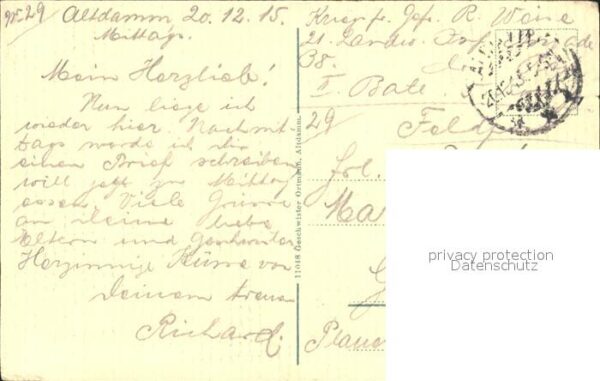 No 29 Altdamm 20.12.15.
Mittags.
Mein Herzlieb!
Nun liege ich
wieder hier. Nachmit-
tags werde ich dir
einen Brief schreiben
will jetzt zu Mittag
essen. Viele Grüsse
an deine liebe
Eltern und Geschwister
Herzinnige Küsse von
Deinem treuen
Richard.
11048 Geschwister Ortmann, Altdamm.
R. Weise
21. Landw.
38.
Feldp
29
Frl.
Ma
G
Plaue
privacy protection
Datenschutz